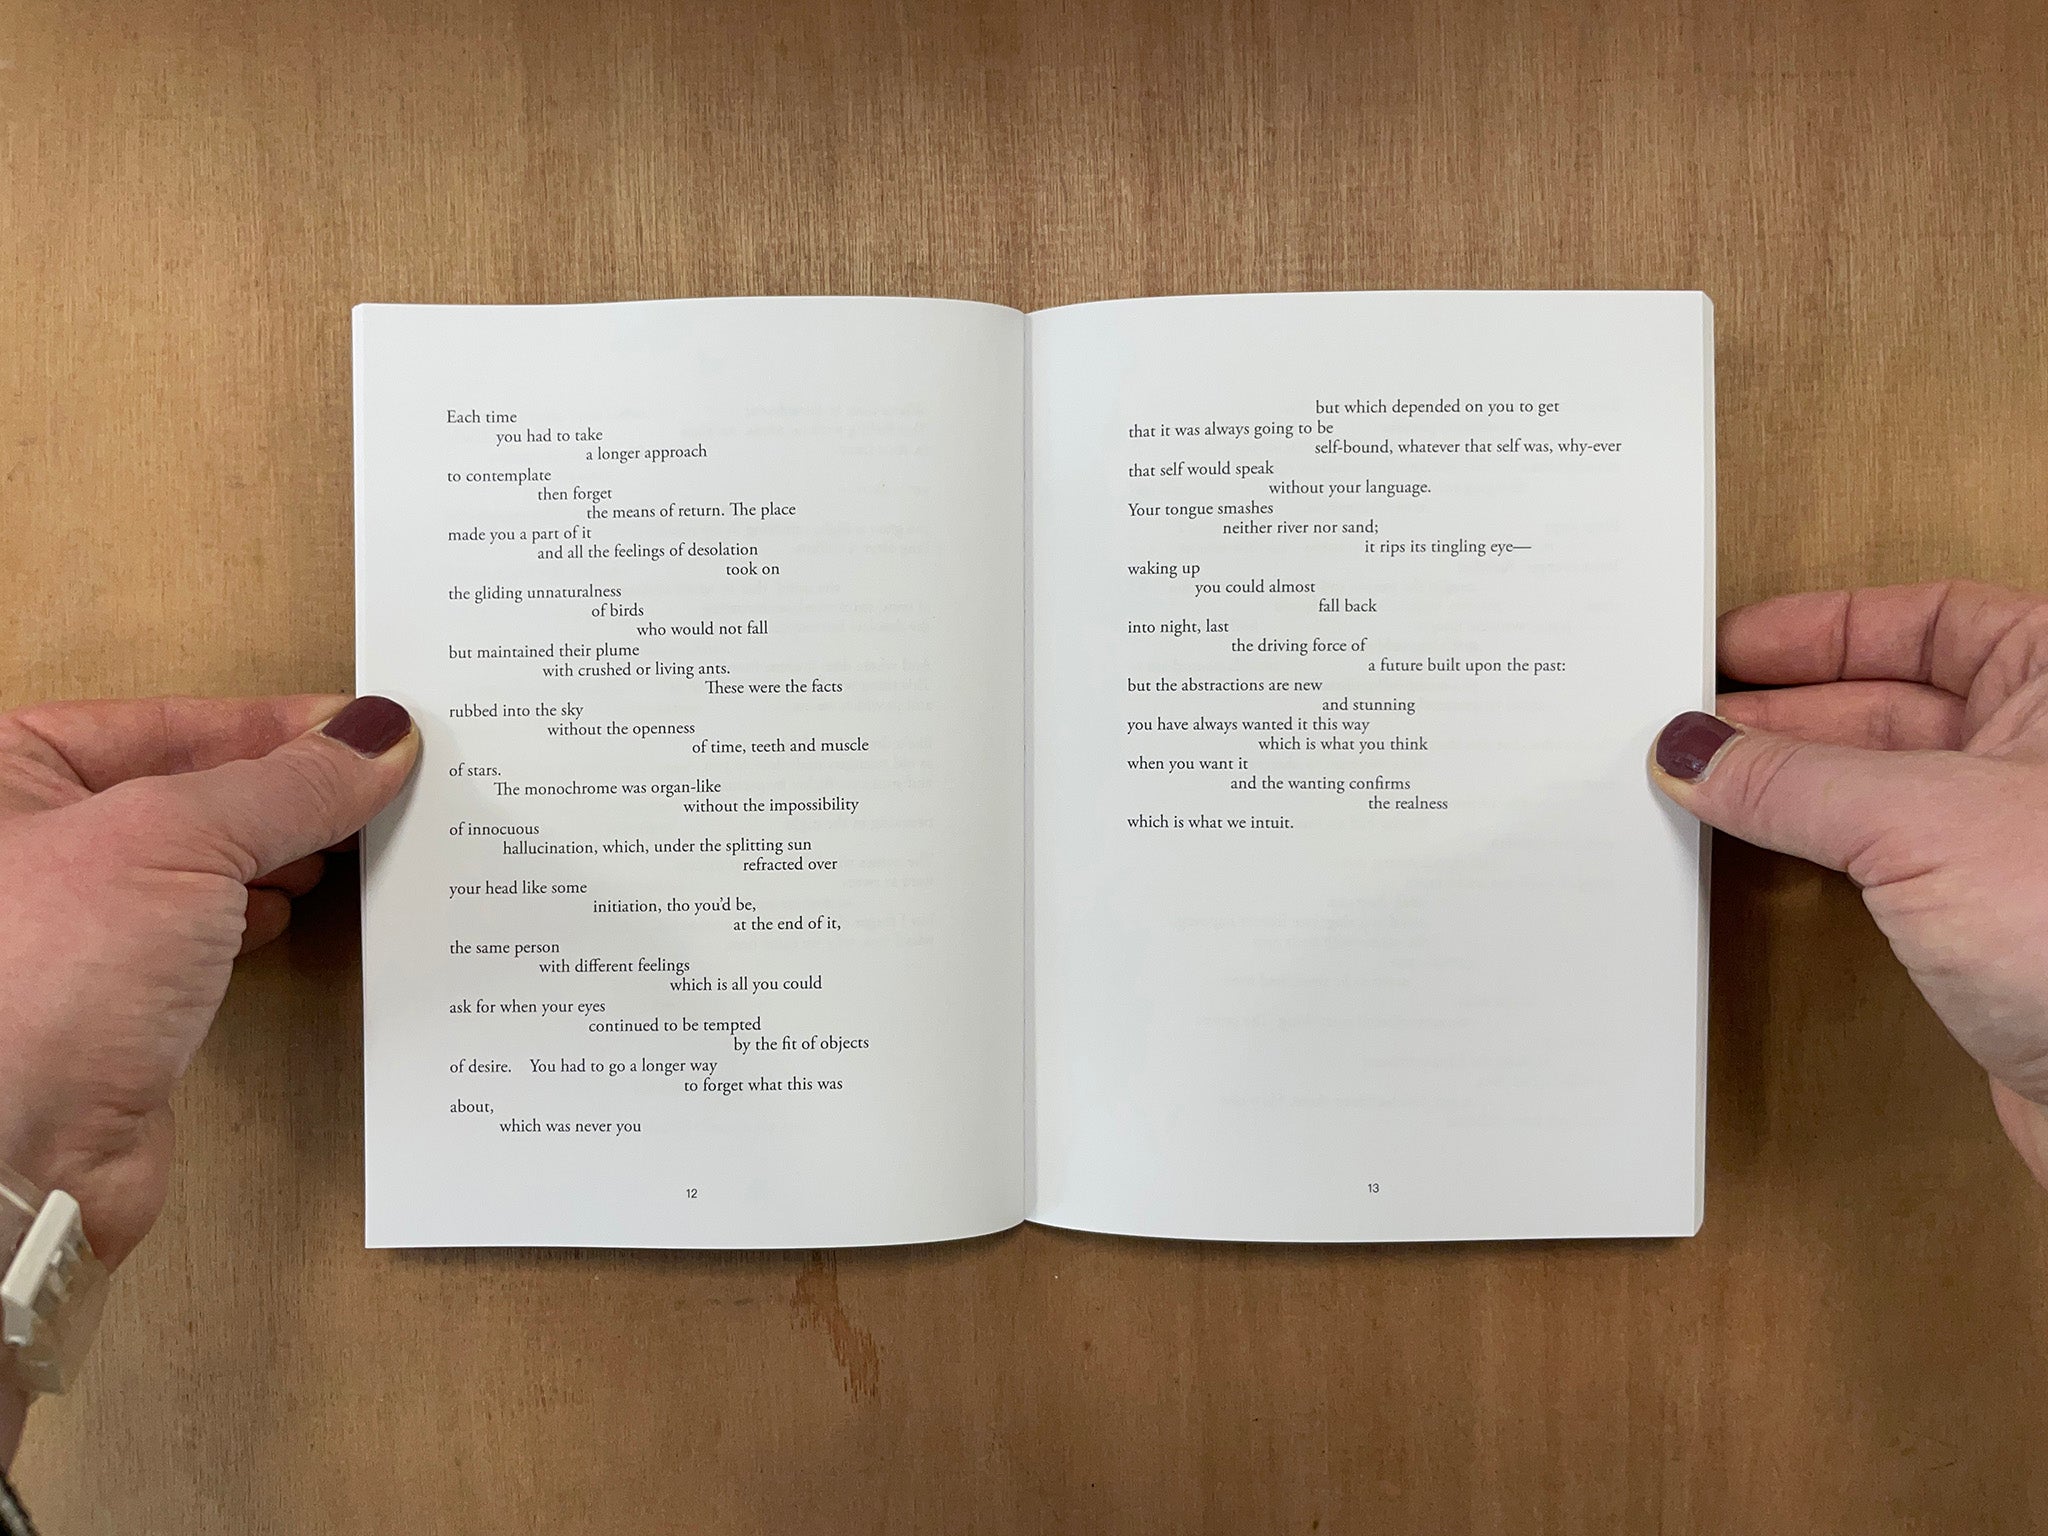 Each time
you had to take
a longer approach
to contemplate
then forget
the means of return. The place
made you a part of it
and all the feelings of desolation
took on
the gliding unnaturalness
of birds
who would not fall
but maintained their plume
with crushed or living ants.
These were the facts
rubbed into the sky
without the openness
of time, teeth and muscle
of stars.
The monochrome was organ-like
without the impossibility
of innocuous
hallucination, which, under the splitting sun
refracted over
your head like some
initiation, tho you'd be,
at the end of it,
the same person
with different feelings
which is all you could
ask for when your eyes
continued to be tempted
by the fit of objects
of desire. You had to go a longer way
to forget what this was
about,
which was never you
12
but which depended on you to get
that it was always going to be
self-bound, whatever that self was, why-ever
that self would speak
without your language.
Your tongue smashes
neither river nor sand;
it rips its tingling eye—
waking up
you could almost
fall back
into night, last
the driving force of
a future built upon the past:
but the abstractions are new
and stunning
you have always wanted it this way
which is what you think
when you want it
and the wanting confirms
the realness
which is what we intuit.
13